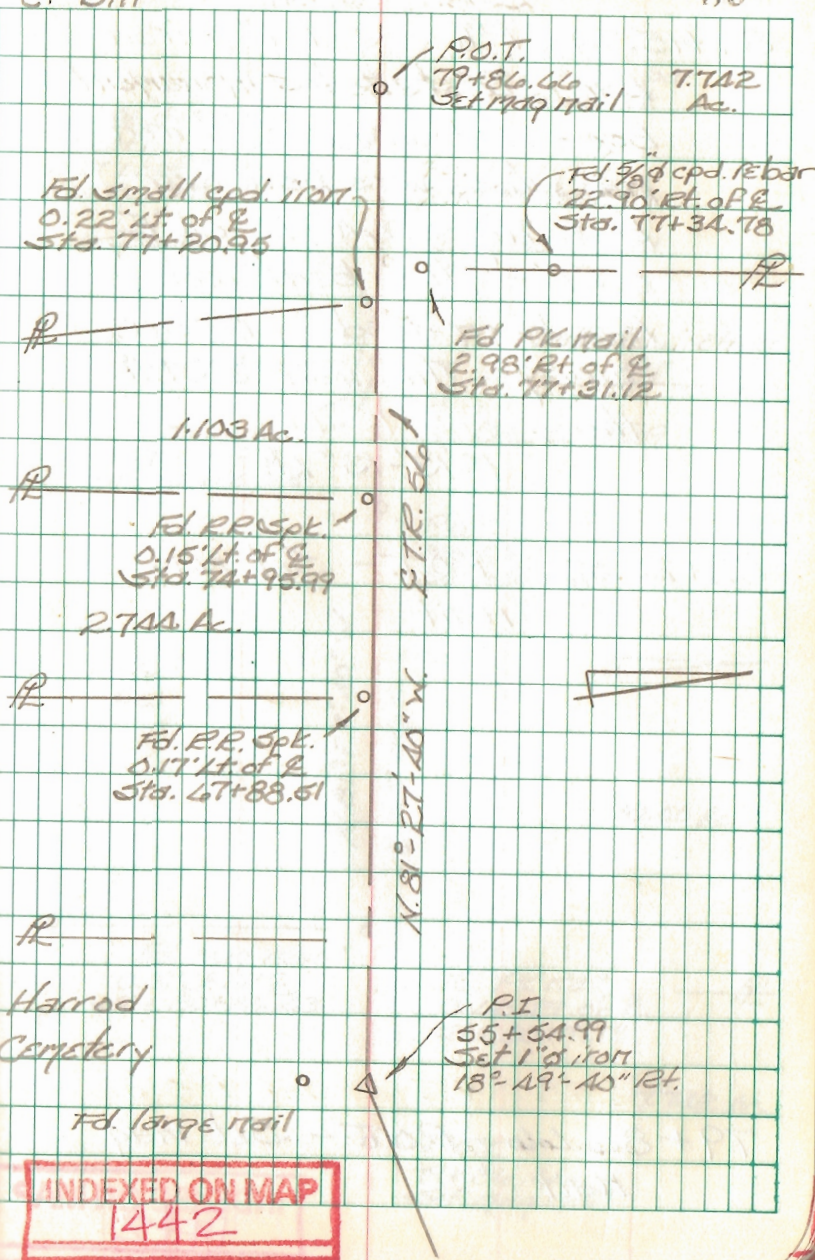 P.O.T.
79+86.66
Set mag nail
7.742
Ac.
Fd. small cpd. iron
0.22' Lt. of ℄
Sta. 77+20.95
Fd. 5/8"ø cpd. rebar
22.90' Rt. of ℄
Sta. 77+34.78
PL
PL
Fd PK nail
2.98' Rt. of ℄
Sta. 77+31.12
1.103 Ac.
℄ T.R. 56
PL
Fd. R.R. Spk.
0.15' Lt. of ℄
Sta. 74+95.99
2.744 Ac.
PL
Fd. R.R. Spk.
0.17' Lt. of ℄
Sta. 67+88.51
N. 81°-27'-40" W.
PL
Harrod
Cemetery
P.I.
55+54.99
Set 1"ø iron
18°-49'-40" Rt.
Fd. large nail
INDEXED ON MAP
1442